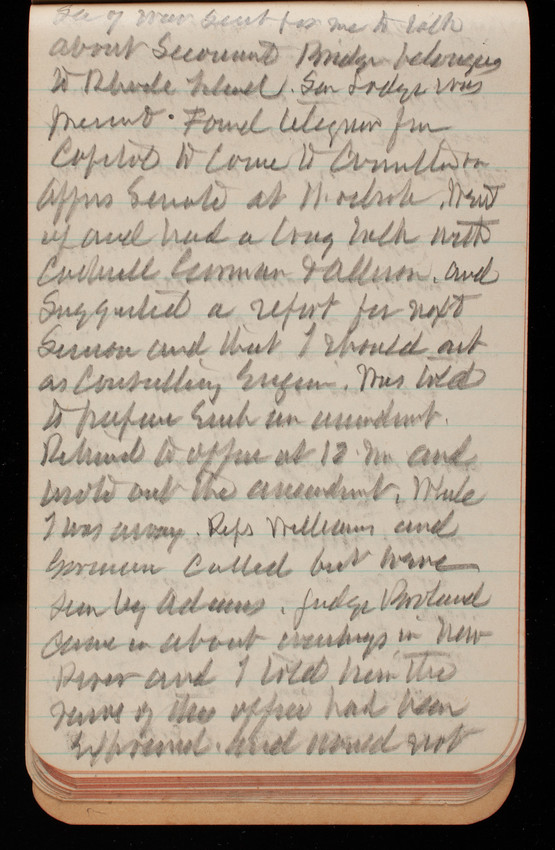 Sec of War sent for me to talk
about Seconnet Bridge belonging
to Rhode Island. Sen Lodge was
present. Found telegram from
Capitol to come to Committee on
Affrs Senate at 11 oclock. Went
up and had a long talk with
Cockrell Gorman & Allison. and
Suggested a report for next
Session and that I should act
as Consulting Engin. Was told
to prepare such an amendmt.
Returned to office at 12 m and
wrote out the amendmt. While
I was away. Reps Williams and
Gorman called but were
seen by Adams. Judge
came in about in New
River and I told him the
views of this office had been
expressed. and would not